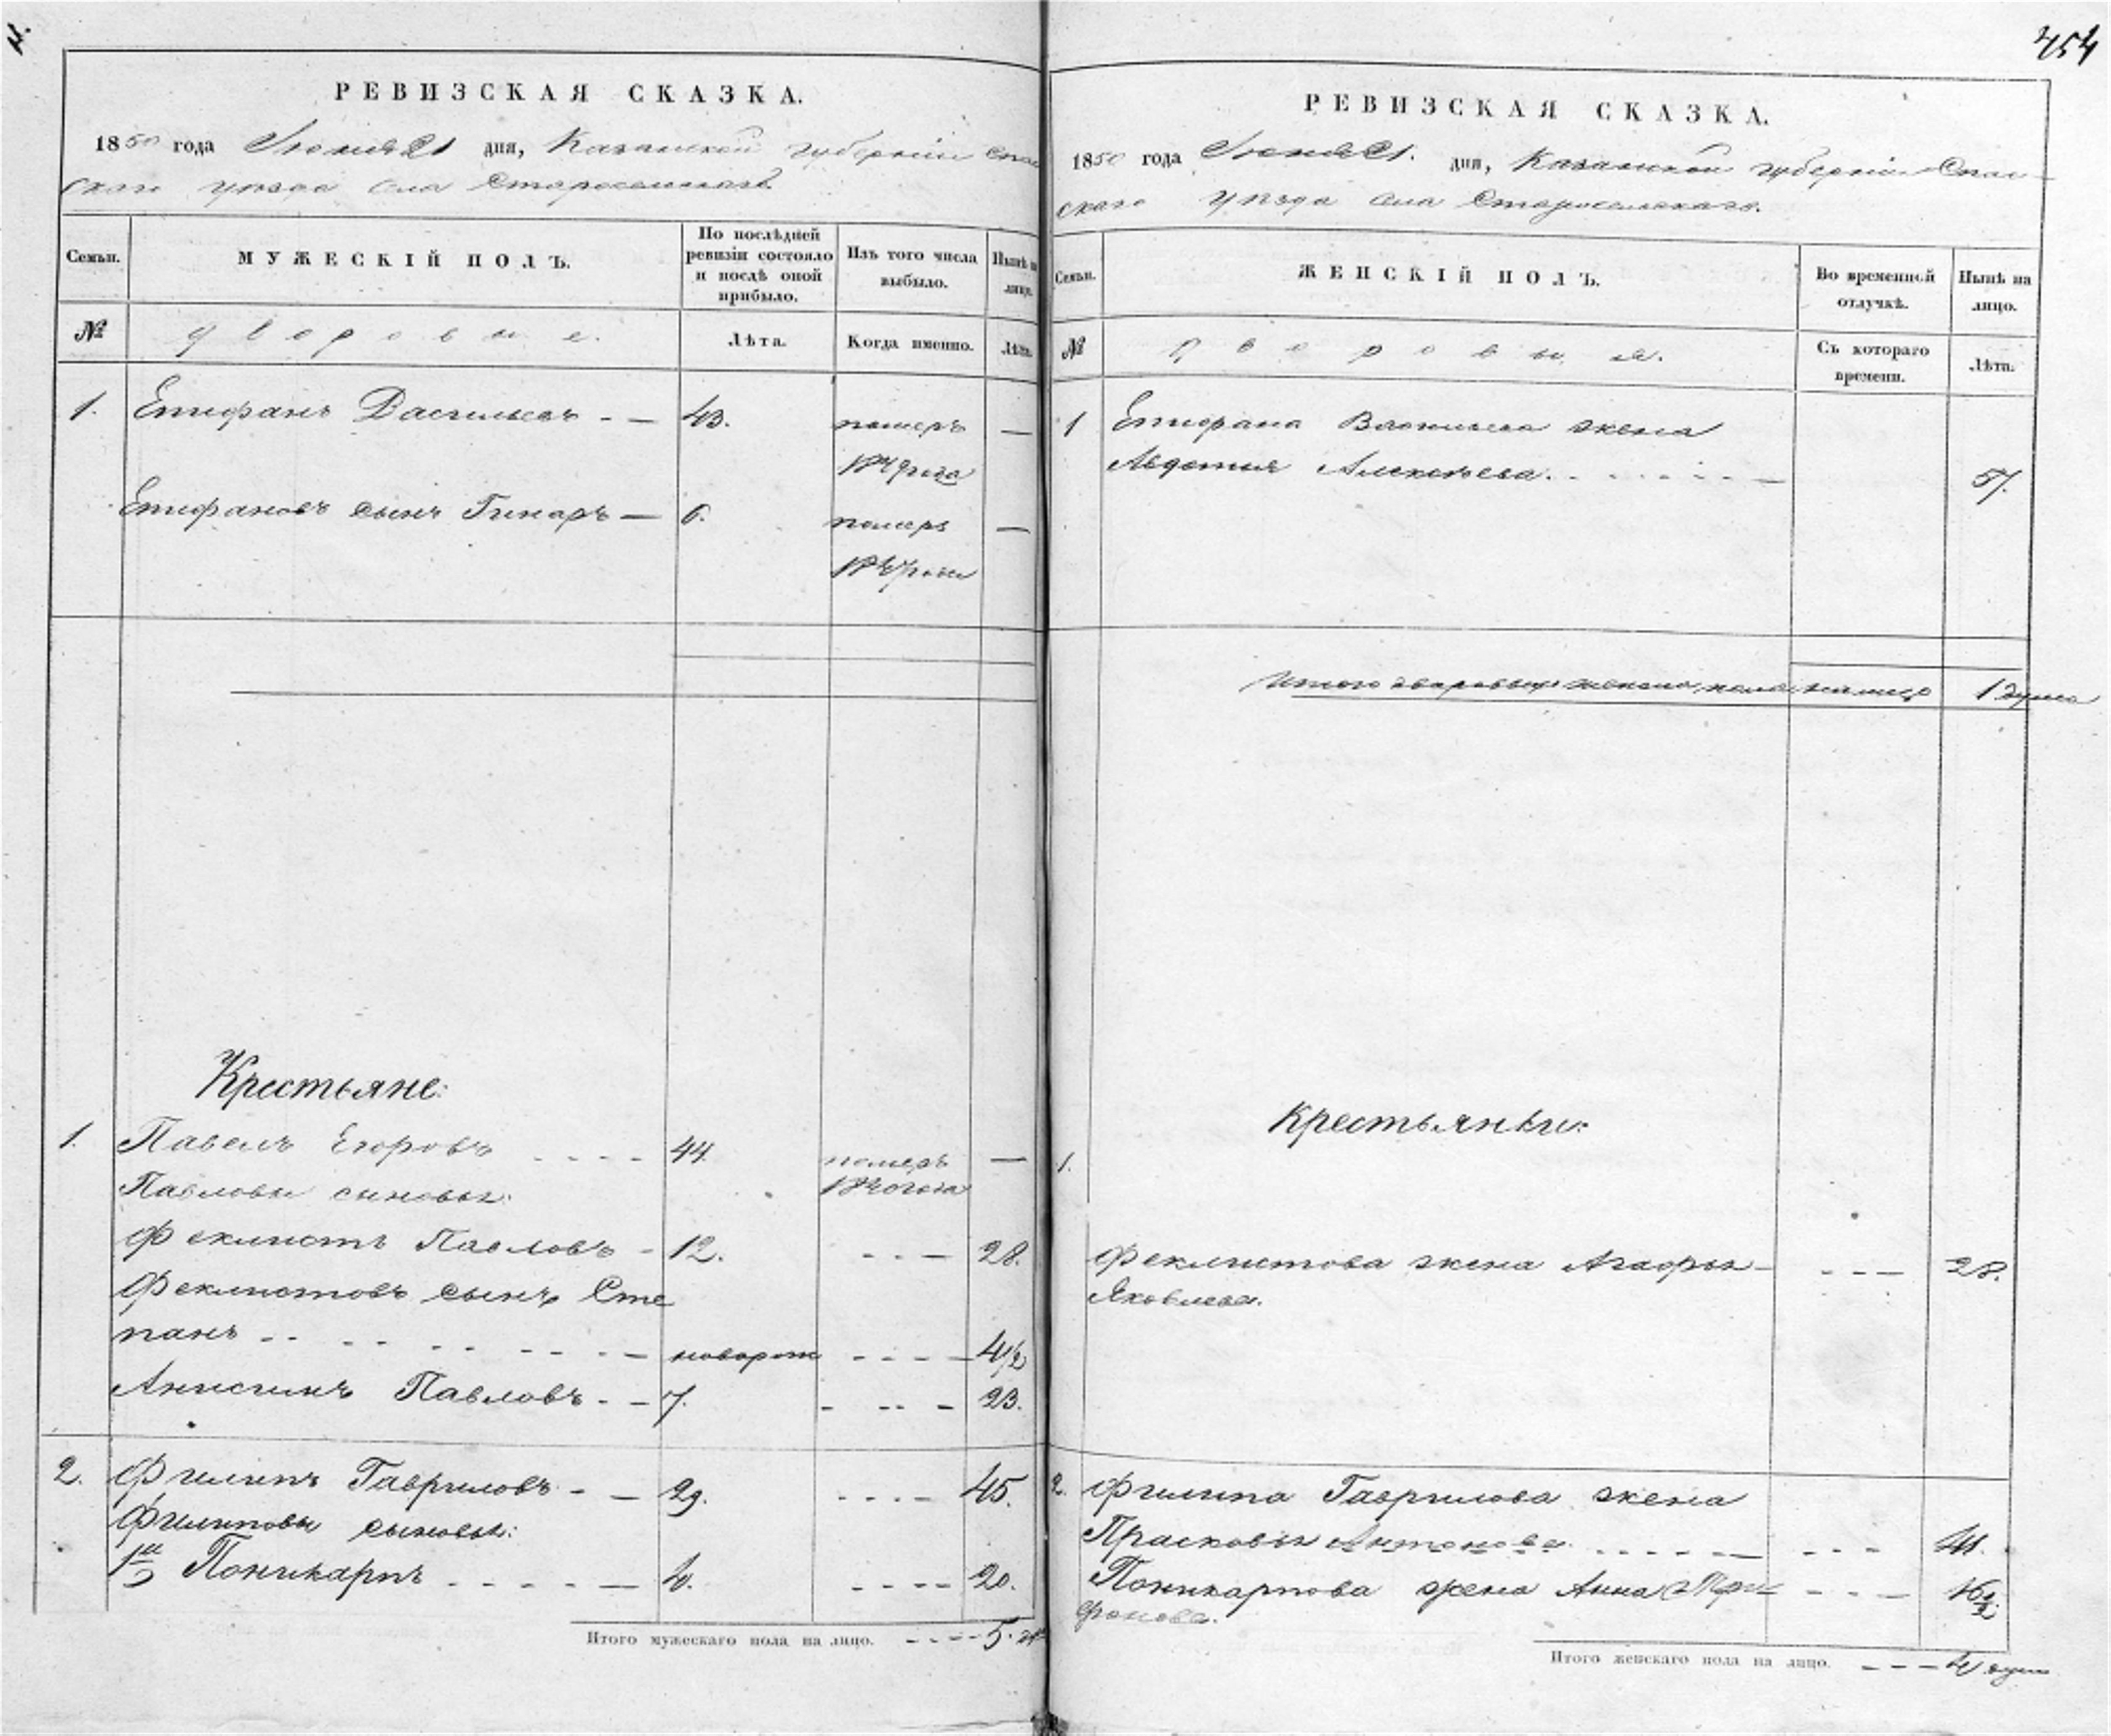 454
РЕВИЗСКАЯ СКАЗКА.
1850 года Июня 21 дня, Казанской губерніи Спас
скаго уѣзда села Старосельскаго
Семьи.
МУЖЕСКІЙ ПОЛЪ.
По послѣдней ревизіи состояло и послѣ оной прибыло.
Изъ того числа выбыло.
Нынѣ на лицо.
№
дворовые.
Лѣта.
Когда именно.
Лѣта.
1. Епифанъ Васильевъ - — 43. померъ —
года
Епифановъ сынъ — 6. померъ —
года
Крестьяне:
1. Павелъ Егоровъ - - - - 44 померъ —
Павловы сыновья: года
Феклистъ Павловъ - 12. - - — 28.
Феклистовъ сынъ Сте
панъ - - - - - - - — новорож - - - — 4 1/2
Анисимъ Павловъ - — 7. - - - - 23.
2. Филипъ Гавриловъ - — 29. - - - — 45.
Филиповы сыновья:
1й Поликарпъ - - - - — 4. - - - - 20.
Итого мужескаго пола на лицо. - - - - 5.
РЕВИЗСКАЯ СКАЗКА.
1850 года Июня 21. дня, Казанской губерніи Спас-
скаго уѣзда села Старосельскаго.
Семьи.
ЖЕНСКІЙ ПОЛЪ.
Во временной отлучкѣ.
Нынѣ на лицо.
№
дворовыя.
Съ котораго времени.
Лѣта.
1 Епифана Васильева жена
Авдотья Алексѣева. - - - - - — 57.
Итого дворовыхъ женска пола на лицо 1 душа
Крестьянки:
1.
Феклистова жена Агафья — - - — 28.
Яковлева.
2. Филипа Гаврилова жена
Прасковья Антонова. - - - - — - - - 41.
Поликарпова жена Анна Три - - — 16 1/2
фонова.
Итого женскаго пола на лицо. - - — 4 души